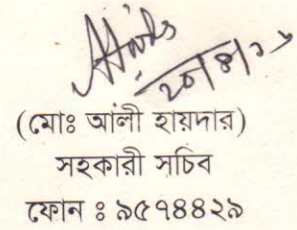 ২০/৪/১৬
(মোঃ আলী হায়দার)
সহকারী সচিব
ফোন : ৯৫৭৪৪২৯